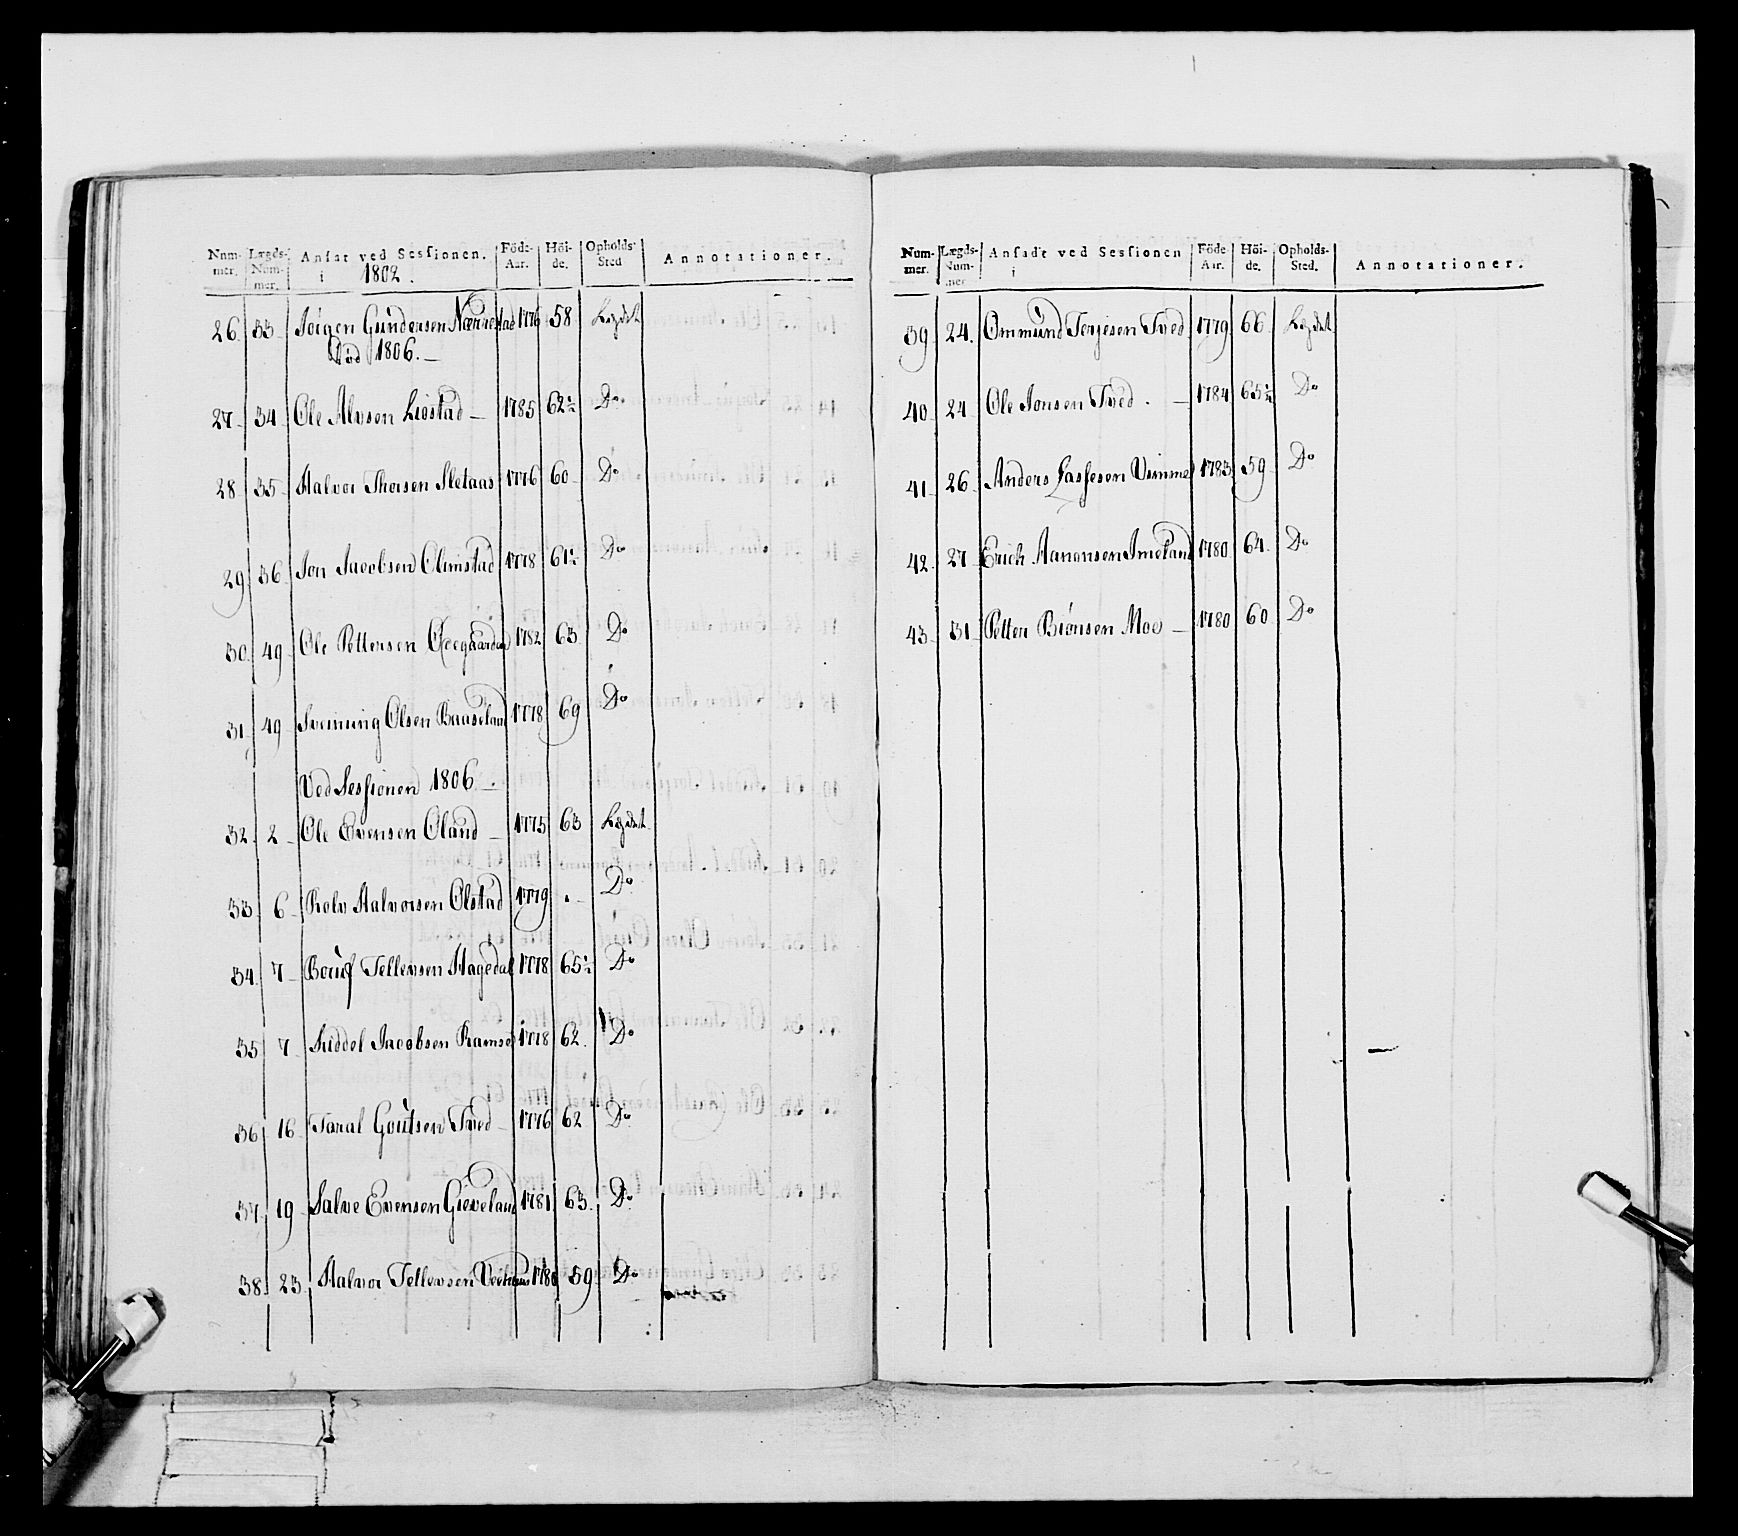 Num- Lægds- Ansat ved Sessionen. Föde- Höi- Opholds- Annotationer.
mer. Num- i 1802. Aar. de. Sted
mer.
26. 33. Jörgen Gundersen Nærrestad 1776 58 Lægdet
Död 1806. —
27. 34. Ole Alvsen Liestad — 1785 62½ Do
28. 35. Halvor Thorsen Sletaas 1776 60 Do
29. 36. Jon Jacobsen Olimstad 1778 61½ Do
30. 49. Ole Pettersen 1782 63. Do
31. 49. Svenning Olsen 1778 69 Do
Ved Sessionen 1806. —
32. 2. Ole Evensen Oland — 1775 63 Lægdet
33. 6. Rolv Halvorsen Olstad 1779 . Do
34. 7. Tellevsen Hagedal 1778 65½ Do
35. 7. Kiddel Jacobsen Ramse 1778 62. Do
36. 16. Taral Goutsen Tved — 1776 62. Do
37. 19. Salve Evensen Gieveland 1781 63. Do
38. 23. Halvor Tellevsen 1780 59 Do
Num- Lægds- Ansadt ved Sessionen Föde Höi- Opholds- Annotationer.
mer. Num- i Aar. de. Sted.
mer
39. 24. Ommund Terjesen Tved 1779 66 Lægdet
40. 24. Ole Jonsen Tved. — 1784 65½ Do
41. 26. Anders Lassesen Usimmel 1783 59 Do
42. 27. Erich Aanonsen Imeland 1780 64. Do
43. 31. Petter Biönsen Moe — 1780 60 Do